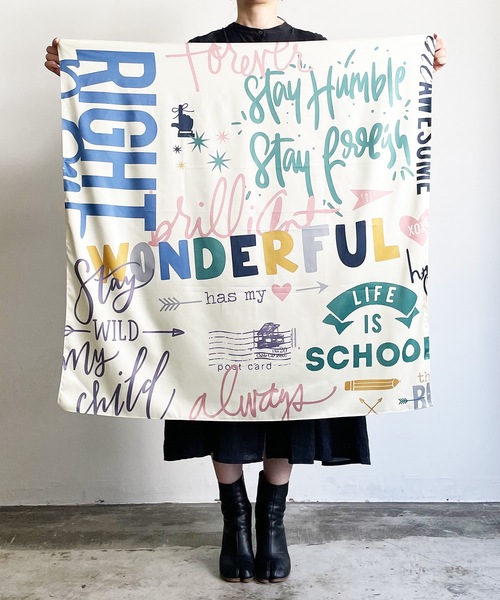 Forever
RIGHT
Stay Humble
Stay foolish
AWESOME
brilliant
XOXO
WONDERFUL
Stay
WILD
my
child
has my
LIFE
IS
SCHOOL
post card
always